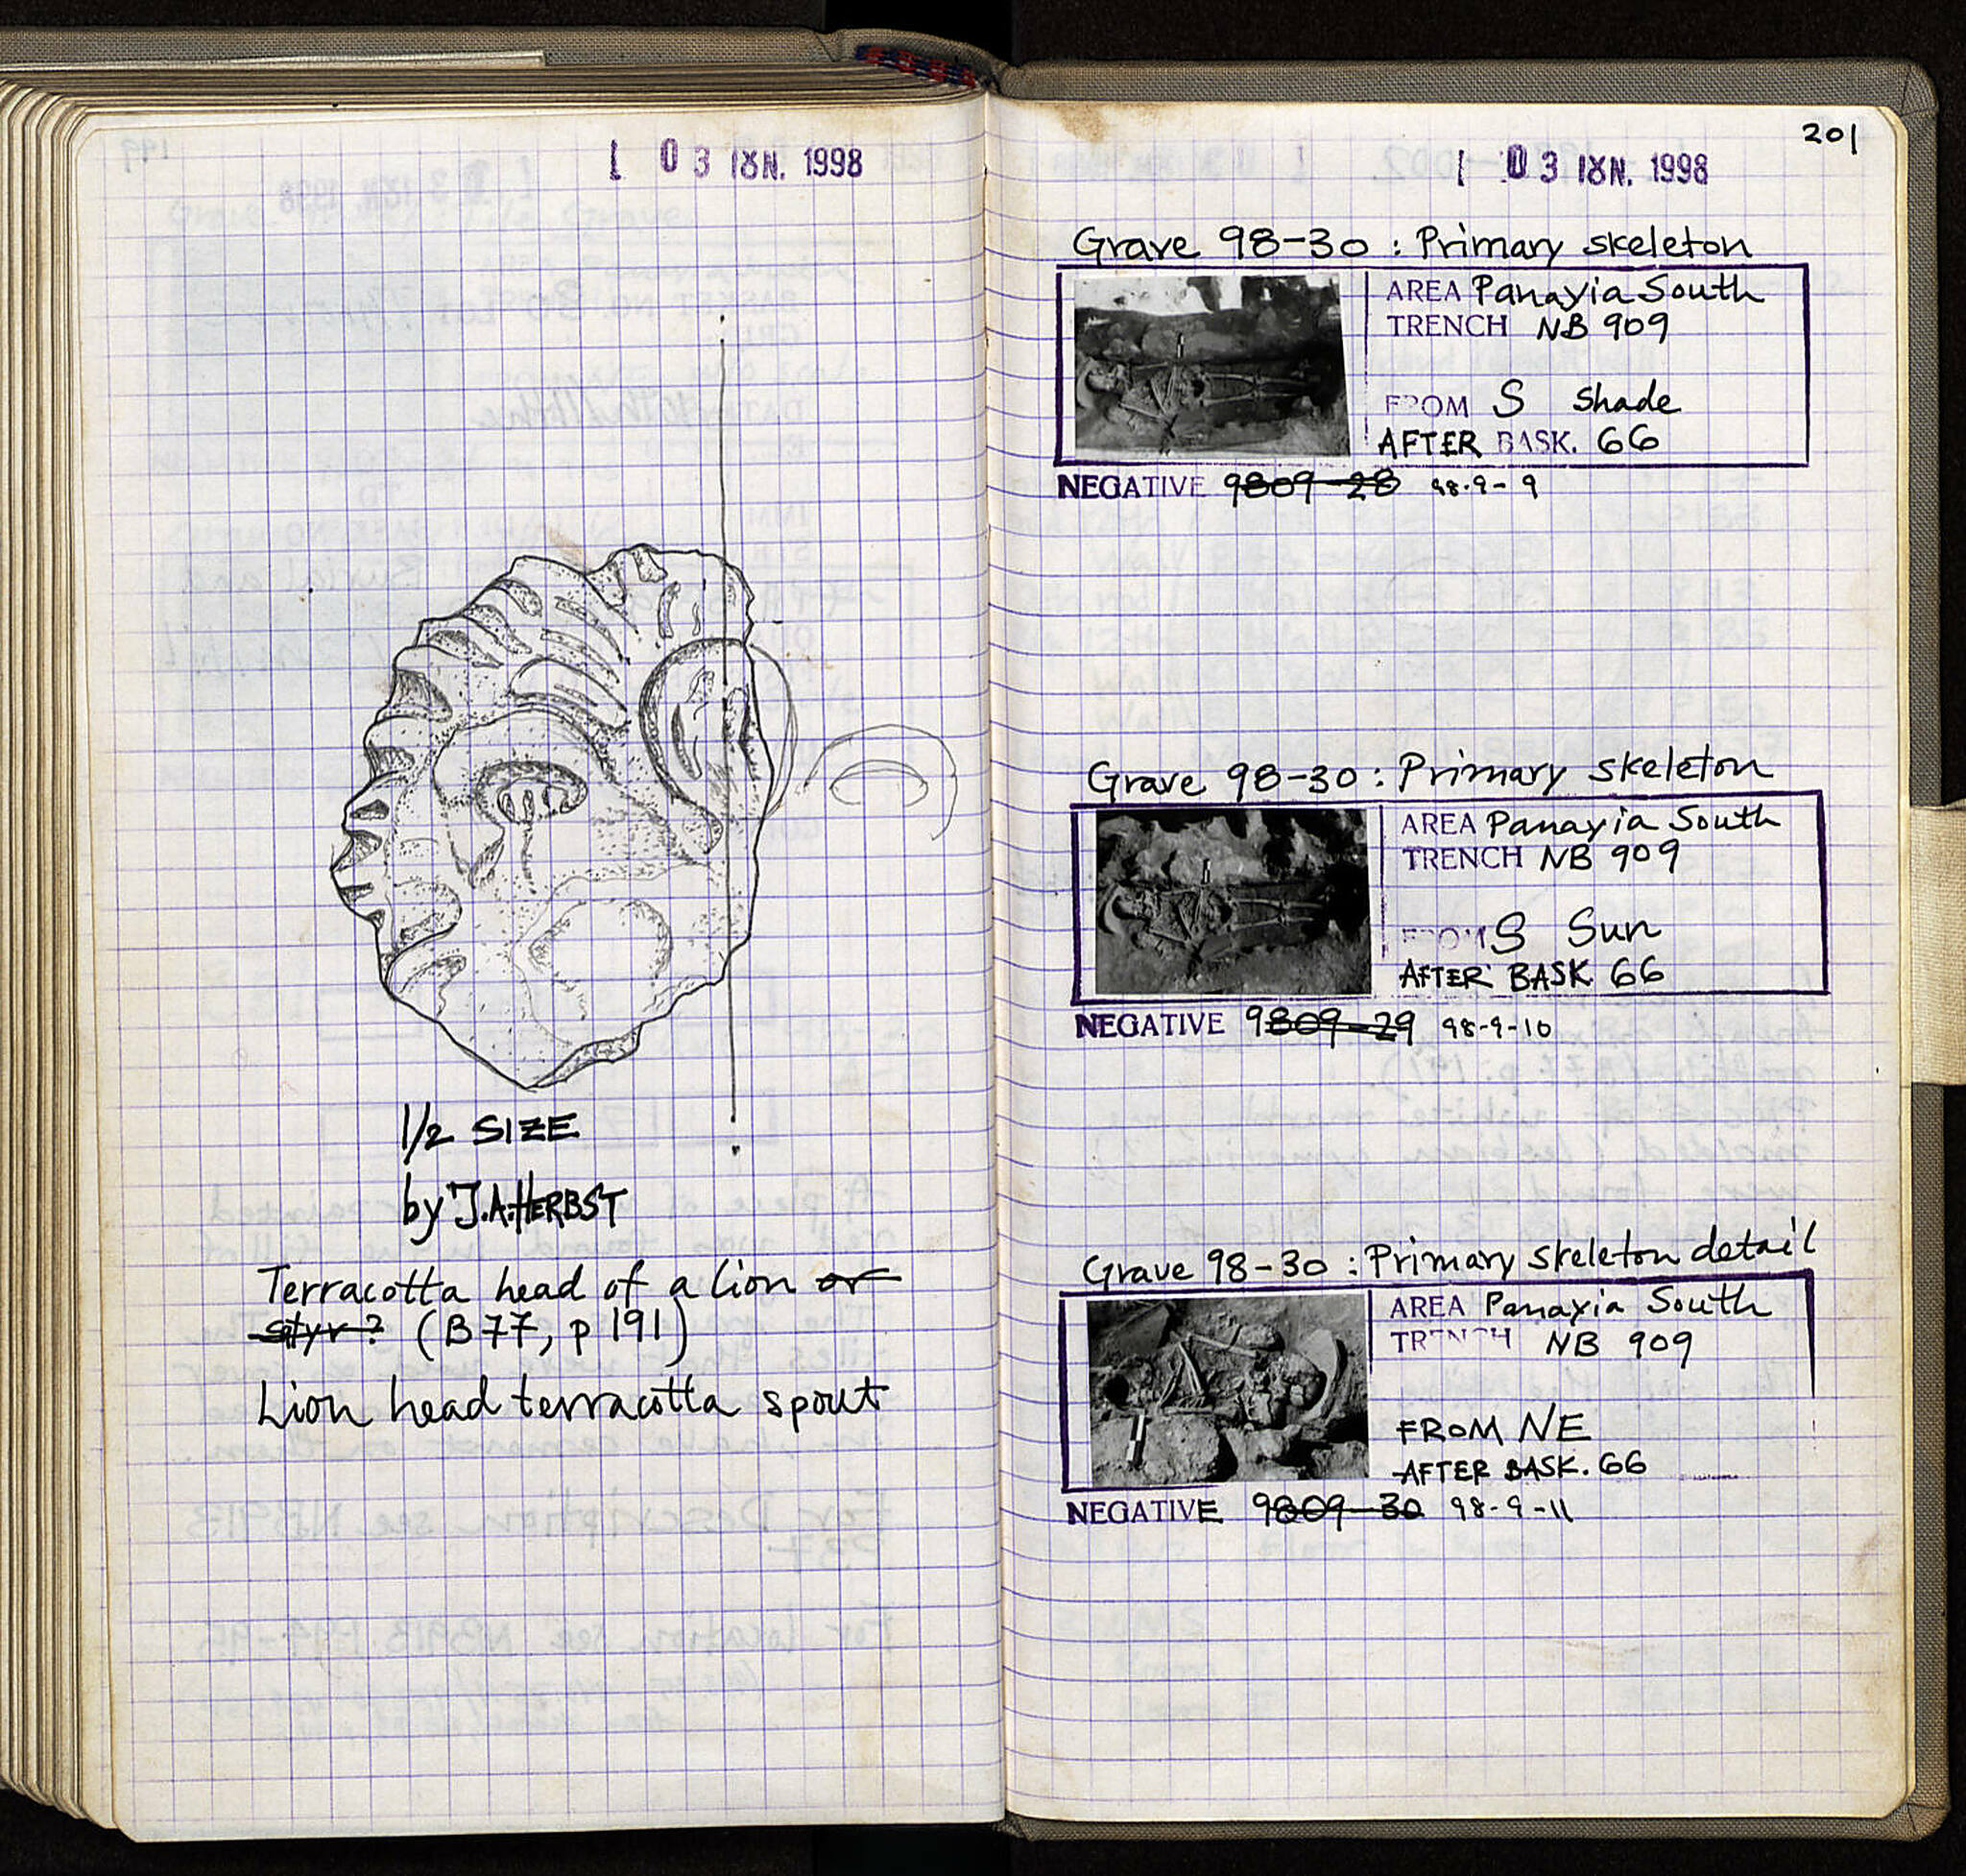 03 ΙΟΥΝ. 1998
1/2 SIZE
by J.A.HERBST
Terracotta head of a lion or
satyr? (B77, p 191)
Lion head terracotta spout
201
03 ΙΟΥΝ. 1998
Grave 98-30 : Primary skeleton
AREA Panayia South
TRENCH NB 909
FROM S Shade
AFTER BASK. 66
NEGATIVE 9809-28 98-9-9
Grave 98-30 : Primary skeleton
AREA Panayia South
TRENCH NB 909
FROM S Sun
AFTER BASK. 66
NEGATIVE 9809-29 98-9-10
Grave 98-30 : Primary skeleton detail
AREA Panayia South
TRENCH NB 909
FROM NE
AFTER BASK. 66
NEGATIVE 9809-30 98-9-11